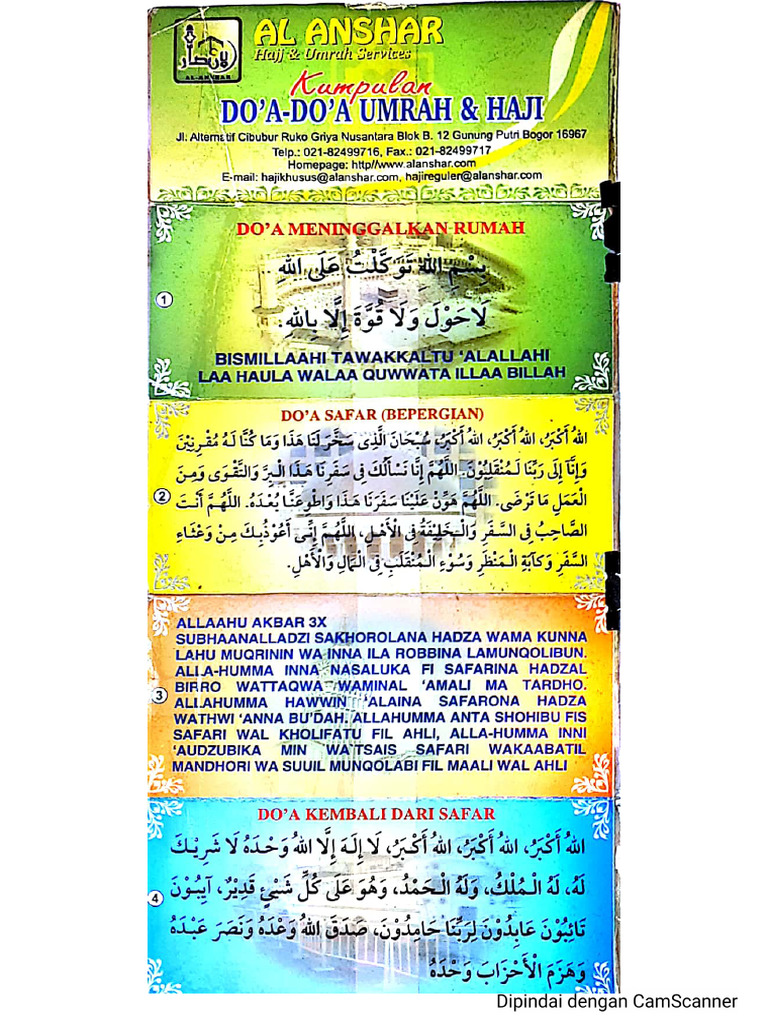 AL ANSHAR
Hajj & Umrah Services
لأنصار
AL-ANSHAR
Kumpulan
DO'A-DO'A UMRAH & HAJI
Jl. Alternatif Cibubur Ruko Griya Nusantara Blok B. 12 Gunung Putri Bogor 16967
Telp.: 021-82499716, Fax.: 021-82499717
Homepage: http//www.alanshar.com
E-mail: hajikhusus@alanshar.com, hajireguler@alanshar.com
DO'A MENINGGALKAN RUMAH
بِسْمِ اللهِ تَوَكَّلْتُ عَلَى اللهِ ..
1
لَاحَوْلَ وَلَا قُوَّةَ إِلَّا بِاللهِ.
BISMILLAAHI TAWAKKALTU 'ALALLAHI
LAA HAULA WALAA QUWWATA ILLAA BILLAH
DO'A SAFAR (BEPERGIAN)
اللهُ أَكْبَرُ، اللهُ أَكْبَرُ، اللهُ أَكْبَرُ، سُبْحَانَ الَّذِى سَخَّرَ لَنَا هَذَا وَمَا كُنَّا لَهُ مُقْرِنِيْنَ
وَإِنَّا إِلَى رَبِّنَا لَمُنْقَلِبُوْنَ. اللَّهُمَّ إِنَّا نَسْأَلُكَ فِى سَفَرِنَا هَذَا الْبِرَّ وَالتَّقْوَى وَمِنَ
2
الْعَمَلِ مَا تَرْضَى. اللَّهُمَّ هَوِّنْ عَلَيْنَا سَفَرَنَا هَذَا وَاطْوِعَنَّا بُعْدَهُ. اللَّهُمَّ أَنْتَ
الصَّاحِبُ فِى السَّفَرِ وَالْخَلِيْفَةُ فِى الْأَهْلِ، اللَّهُمَّ إِنِّى أَعُوْذُبِكَ مِنْ وَعْثَاءِ
السَّفَرِ وَكَآبَةِ الْمَنْظَرِ وَسُوْءِ الْمُنْقَلَبِ فِى الْمَالِ وَالْأَهْلِ.
ALLAAHU AKBAR 3X
SUBHAANALLADZI SAKHOROLANA HADZA WAMA KUNNA
LAHU MUQRININ WA INNA ILA ROBBINA LAMUNQOLIBUN.
ALLA-HUMMA INNA NASALUKA FI SAFARINA HADZAL
3
BIRRO WATTAQWA WAMINAL 'AMALI MA TARDHO.
ALLAHUMMA HAWWIN 'ALAINA SAFARONA HADZA
WATHWI 'ANNA BU'DAH. ALLAHUMMA ANTA SHOHIBU FIS
SAFARI WAL KHOLIFATU FIL AHLI, ALLA-HUMMA INNI
'AUDZUBIKA MIN WA'TSAIS SAFARI WAKAABATIL
MANDHORI WA SUUIL MUNQOLABI FIL MAALI WAL AHLI
DO'A KEMBALI DARI SAFAR
اللهُ أَكْبَرُ، اللهُ أَكْبَرُ، اللهُ أَكْبَرُ، لَا إِلَهَ إِلَّا اللهُ وَحْدَهُ لَا شَرِيْكَ
لَهُ، لَهُ الْمُلْكُ، وَلَهُ الْحَمْدُ، وَهُوَ عَلَى كُلِّ شَيْئٍ قَدِيْرٌ، آيِبُوْنَ
4
تَائِبُوْنَ عَابِدُوْنَ لِرَبِّنَا حَامِدُوْنَ، صَدَقَ اللهُ وَعْدَهُ وَنَصَرَ عَبْدَهُ
وَهَزَمَ الْأَحْزَابَ وَحْدَهُ
Dipindai dengan CamScanner